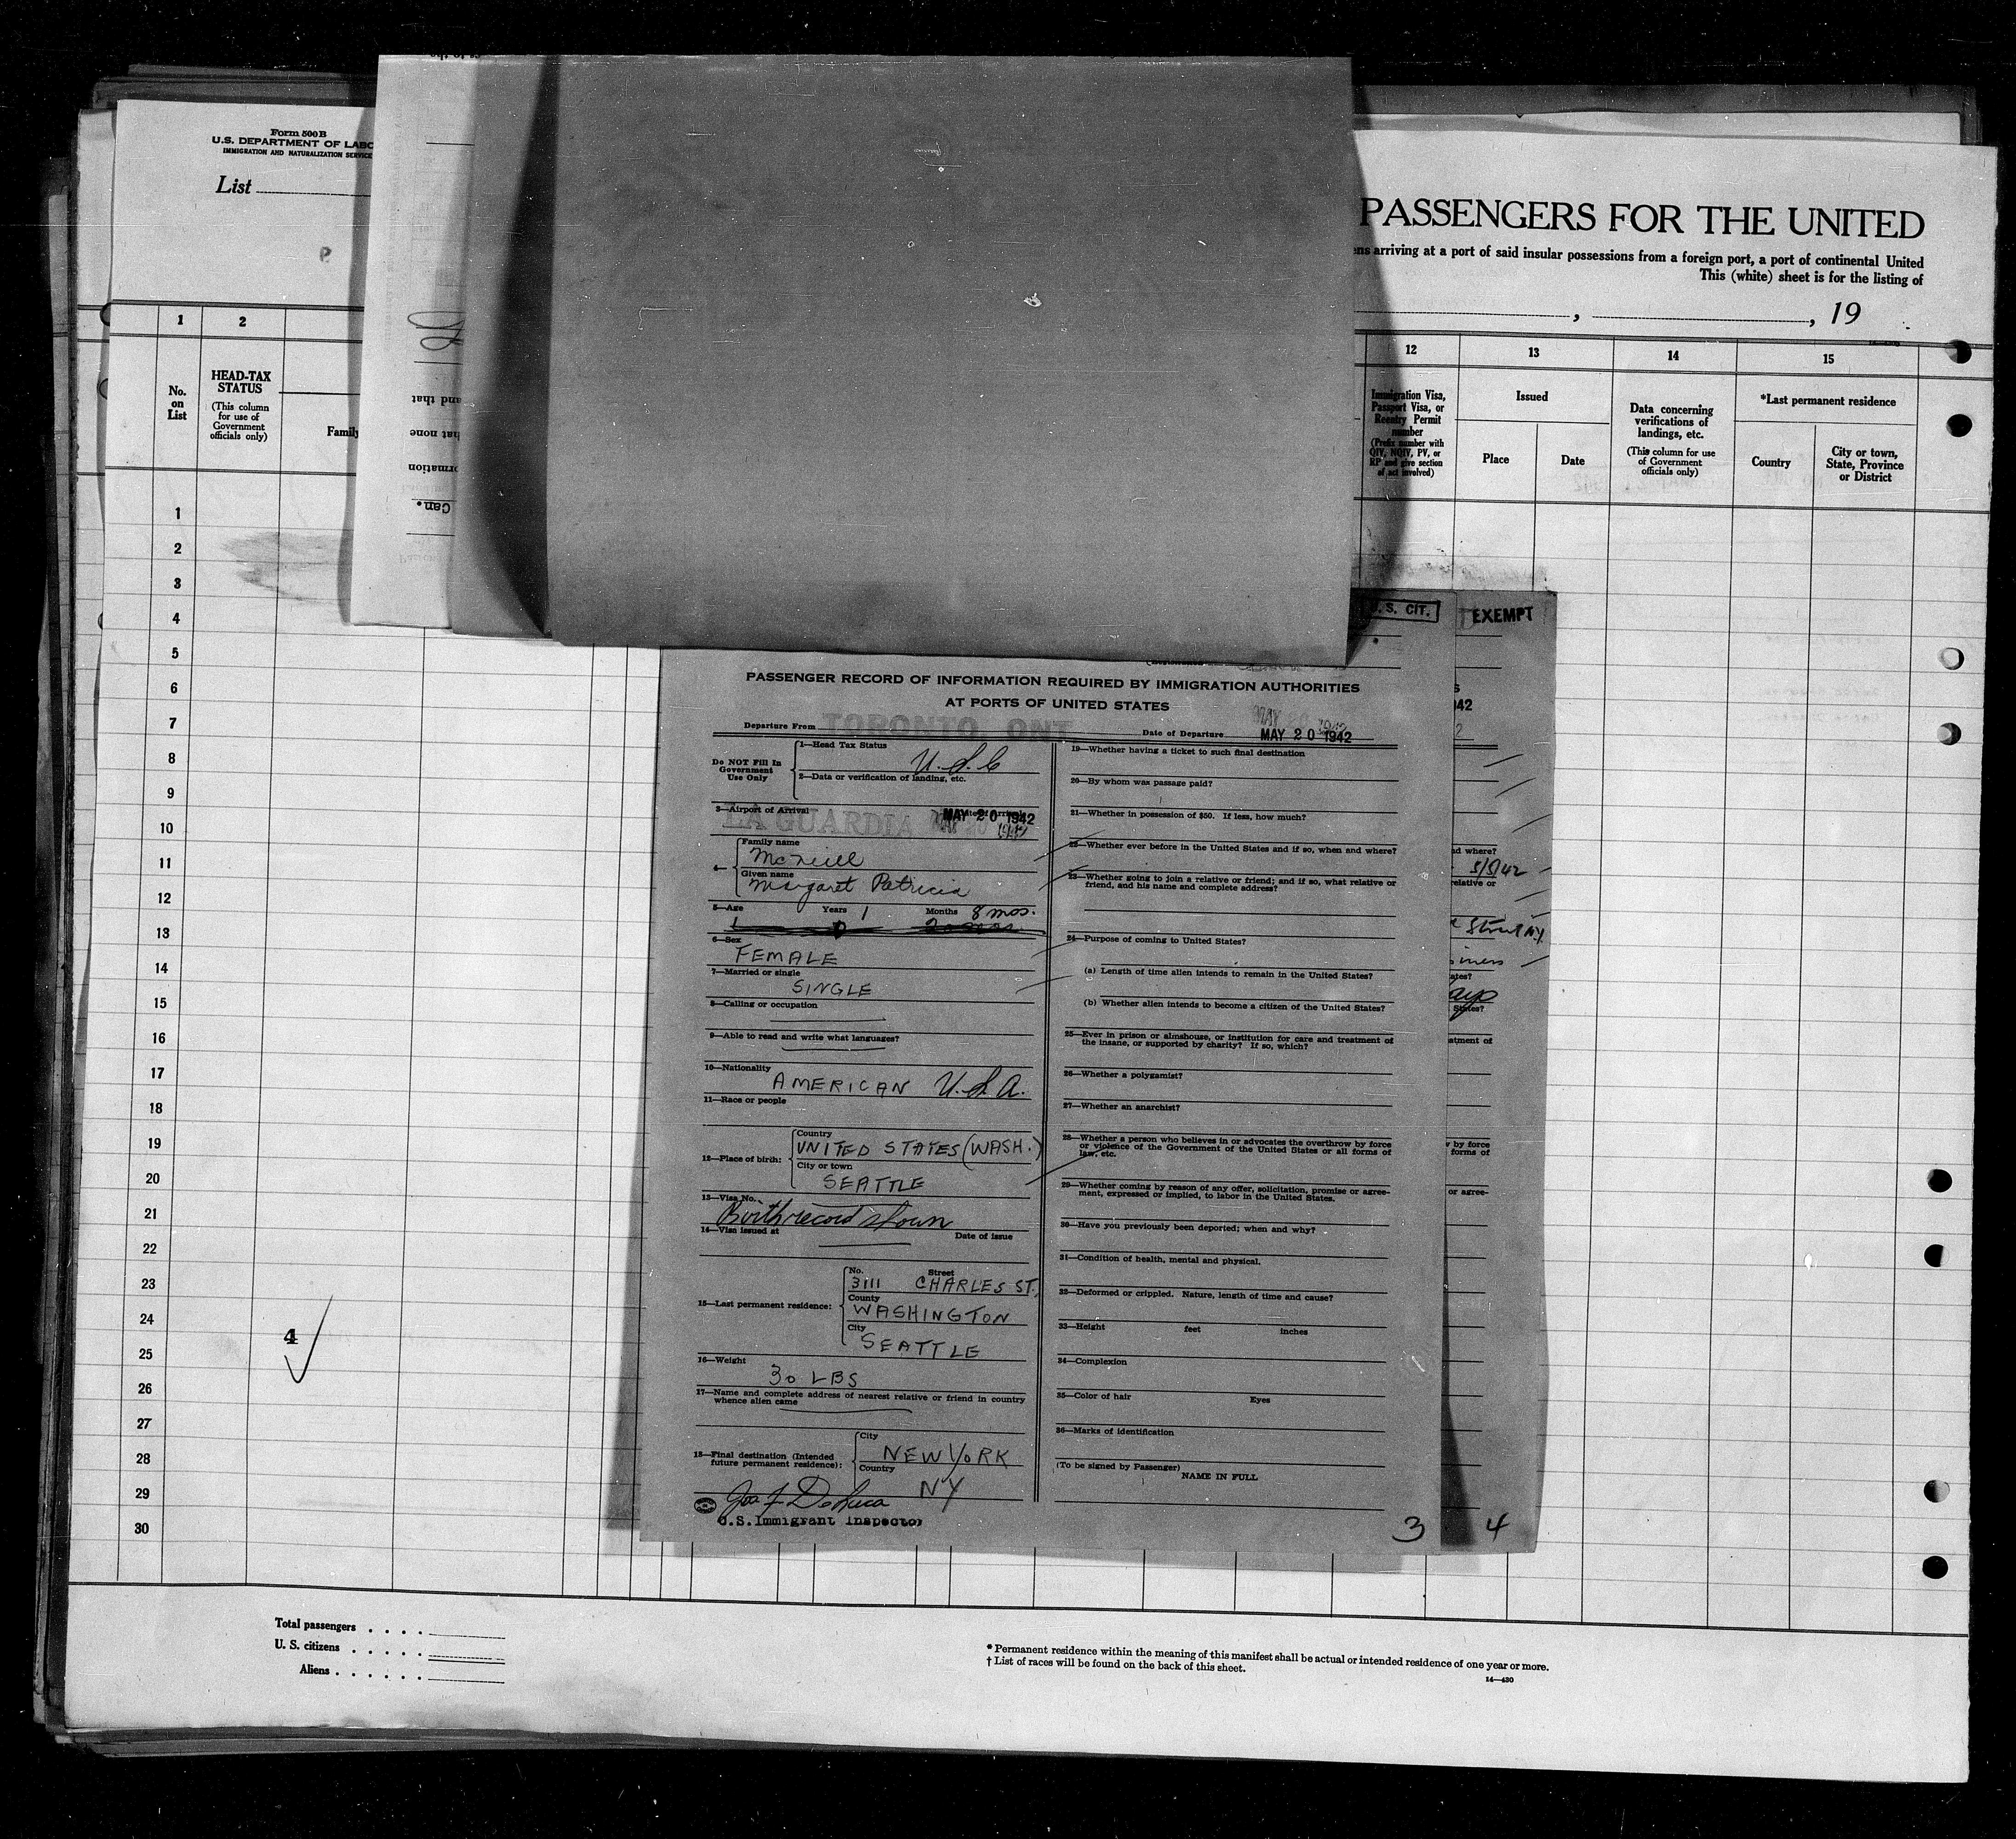 Form 500B
U.S. DEPARTMENT OF LABO
IMMIGRATION AND NATURALIZATION SERVICE
List
P
PASSENGERS FOR THE UNITED
ens arriving at a port of said insular possessions from a foreign port, a port of continental United
This (white) sheet is for the listing of
, , 19
1 2 12 13 14 15
No. on List
HEAD-TAX STATUS
(This column for use of Government officials only)
Family
Immigration Visa, Passport Visa, or Reentry Permit number
(Prefix number with QIV, NQIV, PV, or RP and give section of act involved)
Issued
Place
Date
Data concerning verifications of landings, etc.
(This column for use of Government officials only)
*Last permanent residence
Country
City or town, State, Province or District
and that
that none
ormation
Can.
1
2
3
4
5
6
7
8
9
10
11
12
13
14
15
16
17
18
19
20
21
22
23
24
25
26
27
28
29
30
4
U. S. CIT.
EXEMPT
PASSENGER RECORD OF INFORMATION REQUIRED BY IMMIGRATION AUTHORITIES
AT PORTS OF UNITED STATES
Departure From TORONTO, ONT Date of Departure MAY 20 1942
Do NOT Fill In Government Use Only
1—Head Tax Status
U.S.C
2—Data or verification of landing, etc.
3—Airport of Arrival Date of Arrival
LA GUARDIA MAY 20 1942
4—
Family name
McNeill
Given name
Margaret Patricia
5—Age Years 1 Months 8 mos.
6—Sex
FEMALE
7—Married or single
SINGLE
8—Calling or occupation
9—Able to read and write what languages?
10—Nationality
AMERICAN U.S.A.
11—Race or people
12—Place of birth:
Country
UNITED STATES (WASH.)
City or town
SEATTLE
13—Visa No.
Birth record shown
14—Visa issued at Date of issue
15—Last permanent residence:
No. Street
3111 CHARLES ST.
County
WASHINGTON
City
SEATTLE
16—Weight
30 LBS
17—Name and complete address of nearest relative or friend in country
whence alien came
18—Final destination (Intended
future permanent residence):
City
NEW YORK
Country
NY
Jos F DeLuca
U.S. Immigrant Inspector
19—Whether having a ticket to such final destination
20—By whom was passage paid?
21—Whether in possession of $50. If less, how much?
22—Whether ever before in the United States and if so, when and where?
23—Whether going to join a relative or friend; and if so, what relative or
friend, and his name and complete address?
24—Purpose of coming to United States?
(a) Length of time alien intends to remain in the United States?
(b) Whether alien intends to become a citizen of the United States?
25—Ever in prison or almshouse, or institution for care and treatment of
the insane, or supported by charity? If so, which?
26—Whether a polygamist?
27—Whether an anarchist?
28—Whether a person who believes in or advocates the overthrow by force
or violence of the Government of the United States or all forms of
law, etc.
29—Whether coming by reason of any offer, solicitation, promise or agree-
ment, expressed or implied, to labor in the United States.
30—Have you previously been deported; when and why?
31—Condition of health, mental and physical.
32—Deformed or crippled. Nature, length of time and cause?
33—Height feet inches
34—Complexion
35—Color of hair Eyes
36—Marks of identification
(To be signed by Passenger)
NAME IN FULL
3
S
942
2
nd where?
5/5/42
relative or
Street N.Y.
ates?
ays
States?
atment of
w by force
forms of
or agree-
4
Total passengers . . . .
U. S. citizens . . . . .
Aliens . . . . . .
* Permanent residence within the meaning of this manifest shall be actual or intended residence of one year or more.
† List of races will be found on the back of this sheet.
14—430